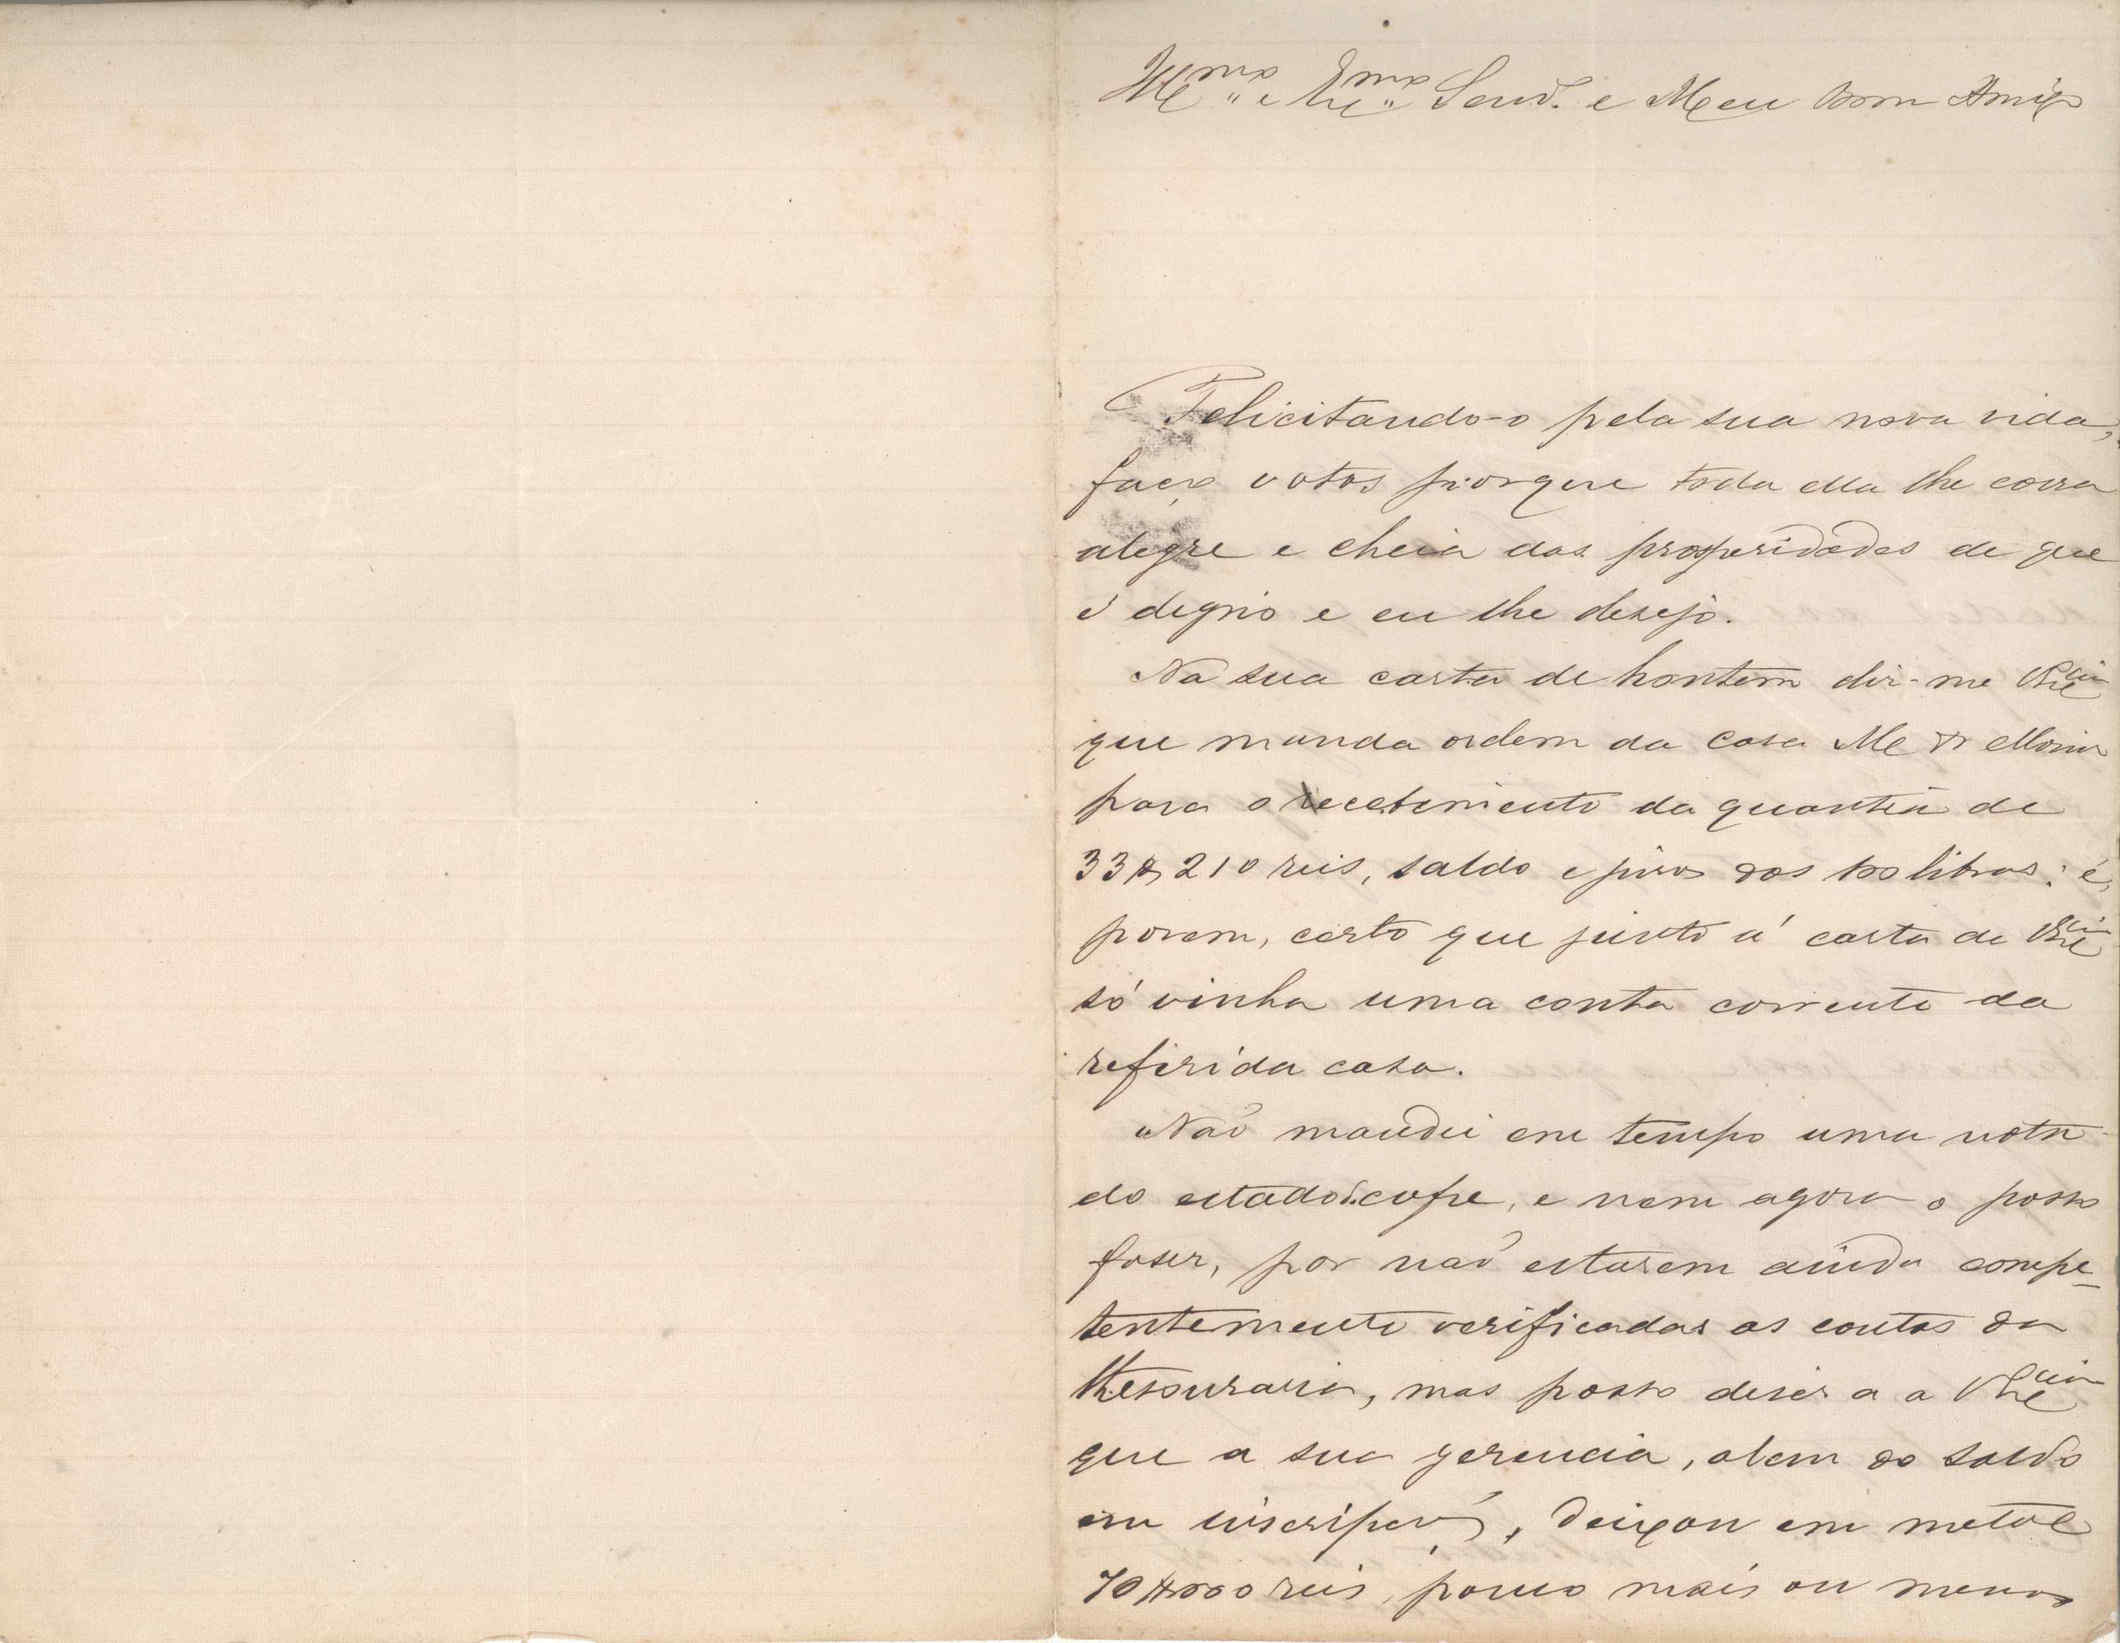 Ill.mo e Ex.mo Senr. e Meu Bom Amigo
Felicitando-o pela sua nova vida,
faço votos porque toda ella lhe corra
alegre e cheia das prosperidades de que
é digno e eu lhe desejo.
Na sua carta de hontem diz-me V Ex.cia
que manda ordem da casa
para o recebimento da quantia de
33$210 reis, saldo e juros das 100 libras: é,
porem, certo que junto á carta de V Ex.cia
só vinha uma conta corrente da
referida casa.
Não mandei em tempo uma nota
do estado do cofre, e nem agora o posso
faser, por não estarem ainda compe-
tentemente verificadas as contas da
thesouraria, mas posso diser a a V Ex.cia
que a sua gerencia, alem do saldo
em inscripções, deixou em metal
70$000 reis, pouco mais ou menos